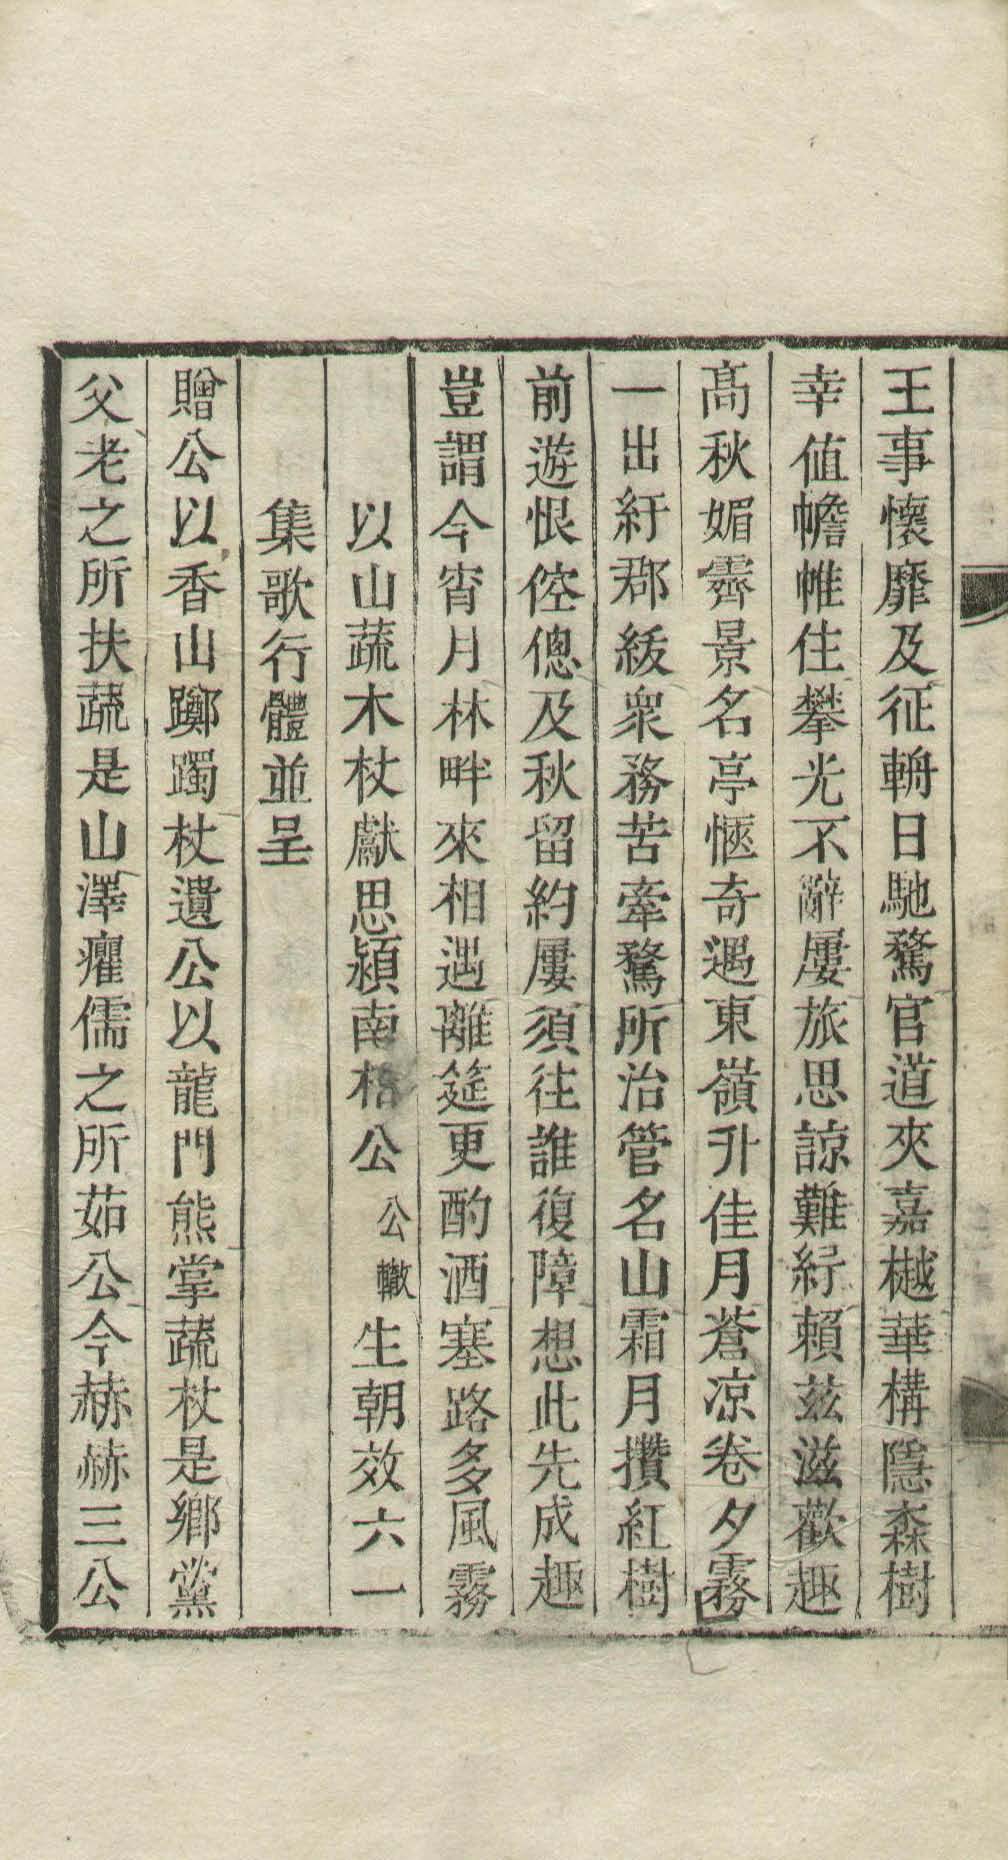 王事懷靡及征輈日馳騖官道夾嘉樾華構隱森樹
幸值幨帷住攀光不辭屢旅思諒難紆賴茲滋歡趣
高秋媚霽景名亭愜奇遇東嶺升佳月蒼凉卷夕霧
一出紆郡綏衆務苦牽騖所治管名山霜月攢紅樹
前遊恨倥傯及秋留約屢須往誰復障想此先成趣
豈謂今宵月林畔來相遇離筵更酌酒塞路多風霧
以山蔬木杖獻思潁南格公公轍生朝效六一
集歌行體並呈
贈公以香山躑躅杖遺公以龍門熊掌蔬杖是鄉黨
父老之所扶蔬是山澤癯儒之所茹公今赫赫三公